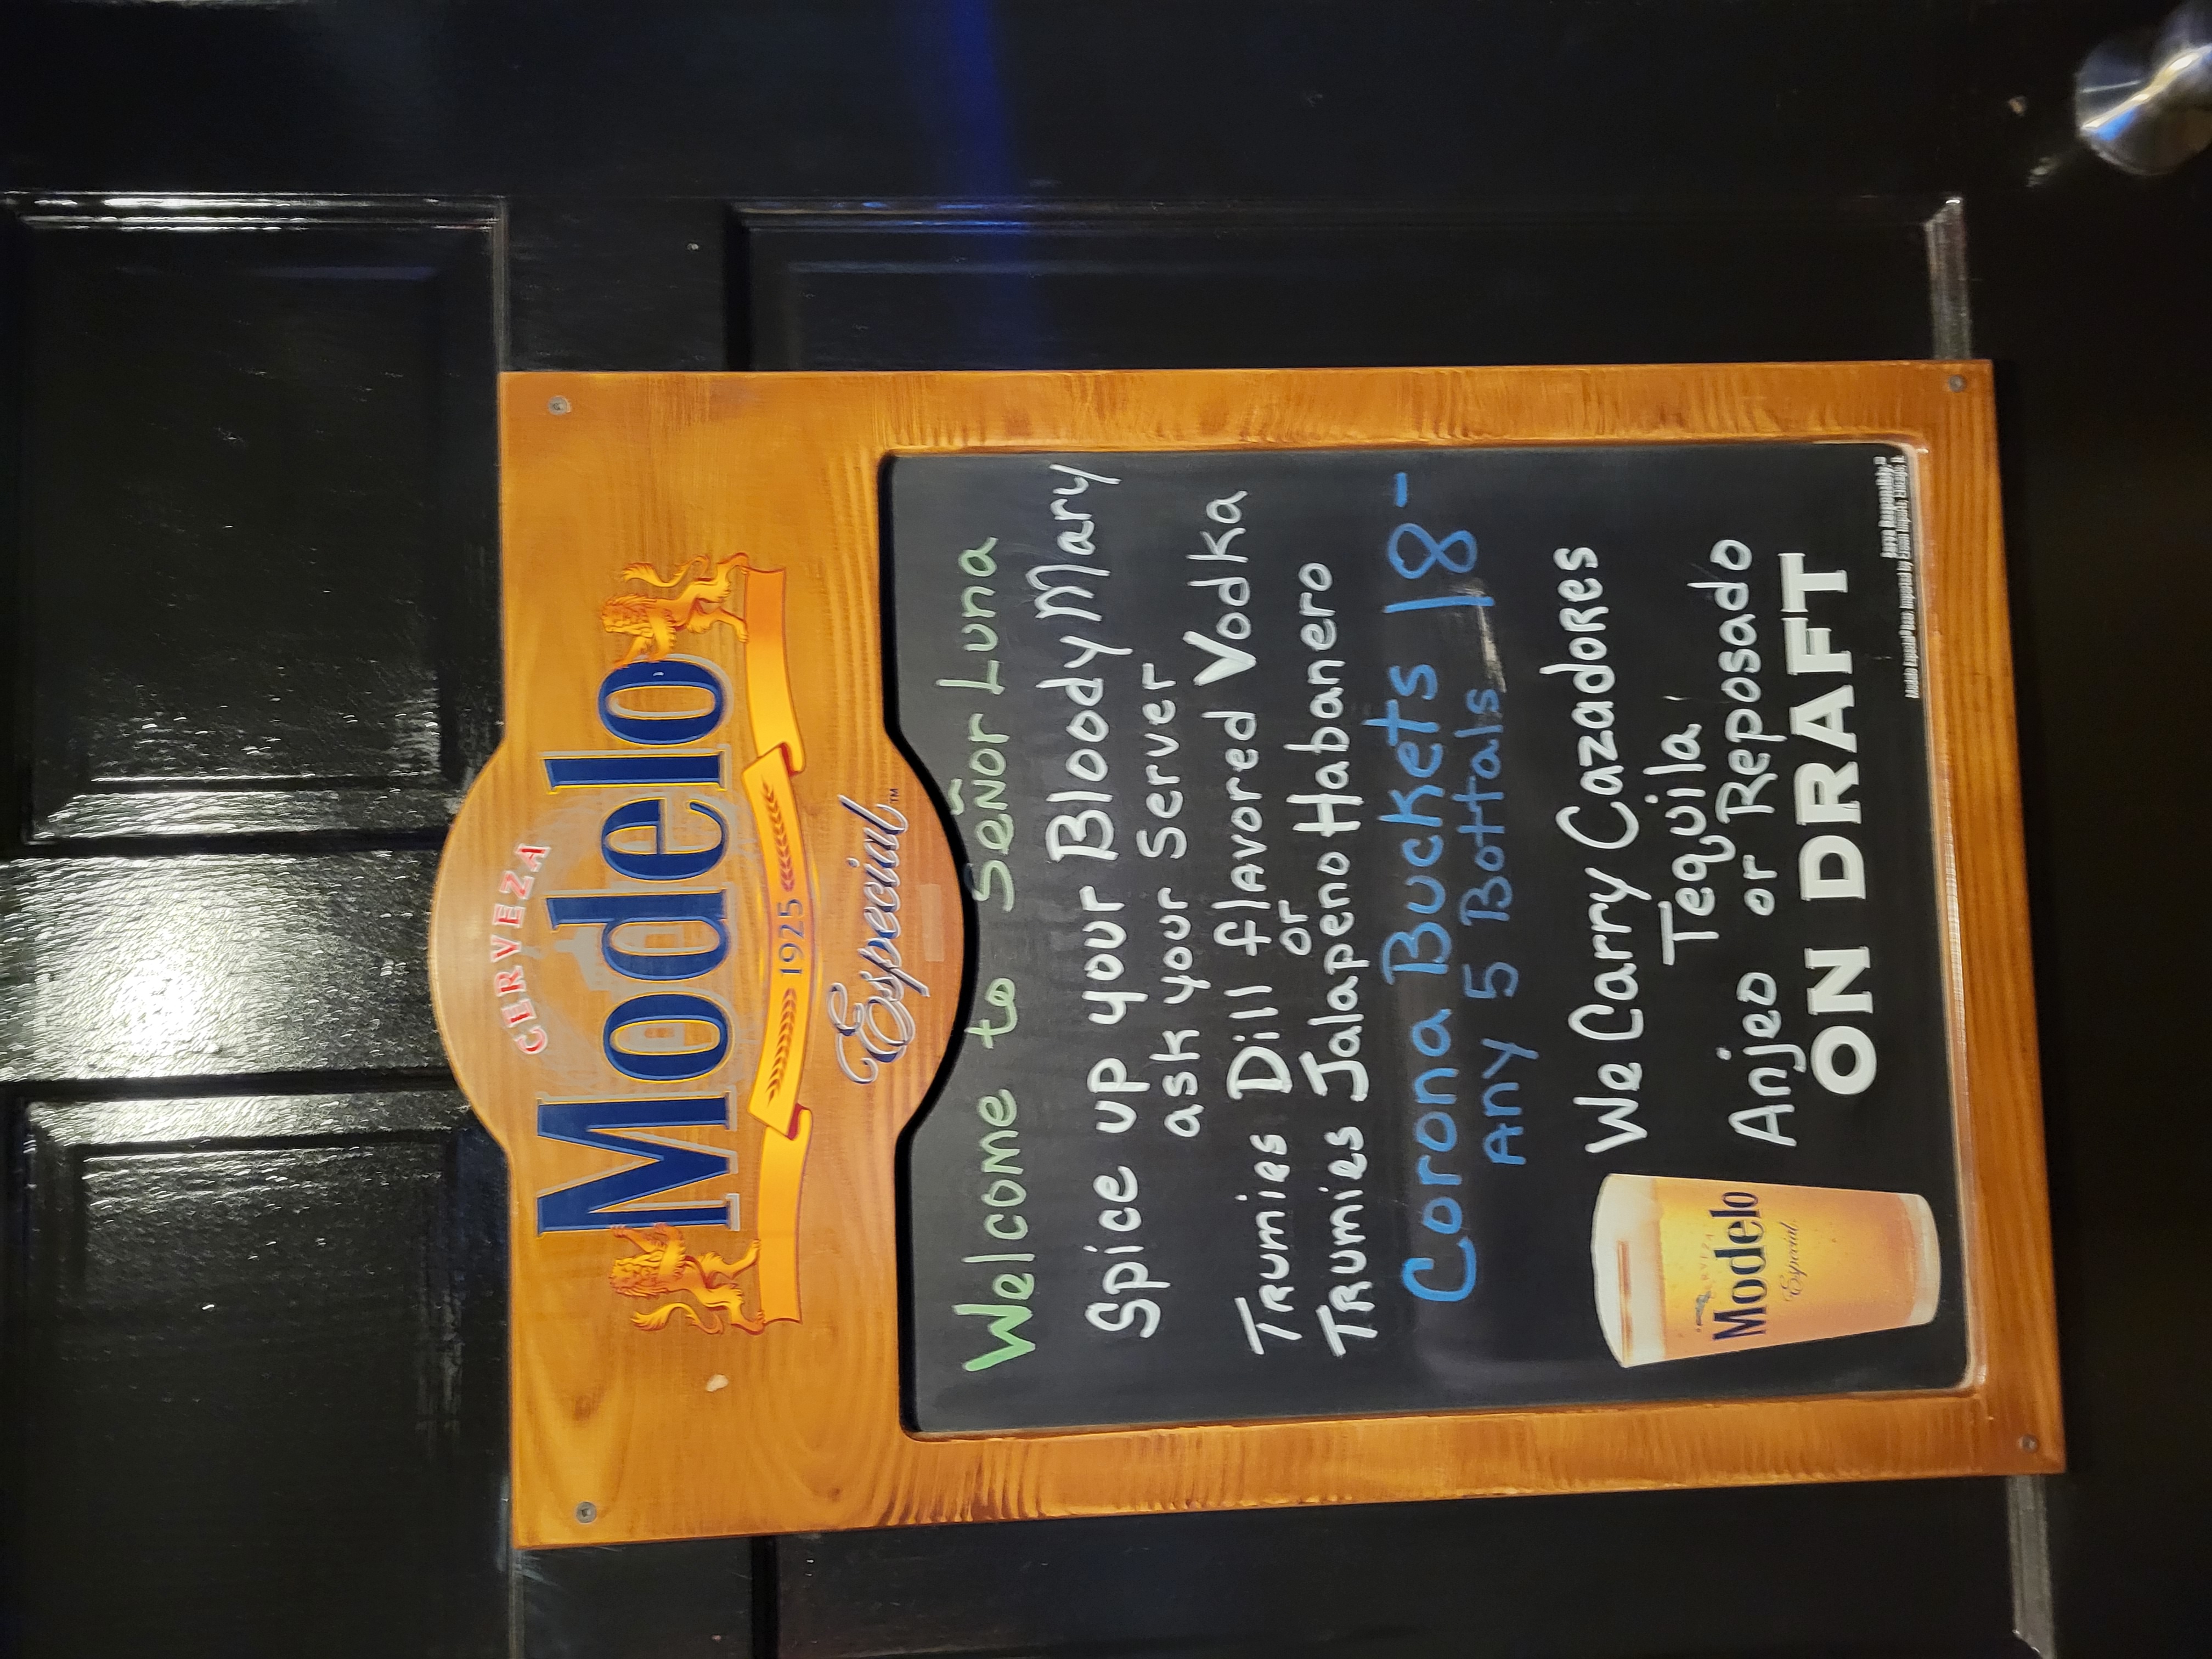 CERVEZA
Modelo
1925
Especial™
Welcome to Señor Luna
Spice up your Bloody Mary
ask your Server
Trumies Dill flavored Vodka
or
Trumies Jalapeno Habanero
Corona Buckets 18-
Any 5 Bottals
We Carry Cazadores
Tequila
Anjeo or Reposado
ON DRAFT
Modelo
Especial